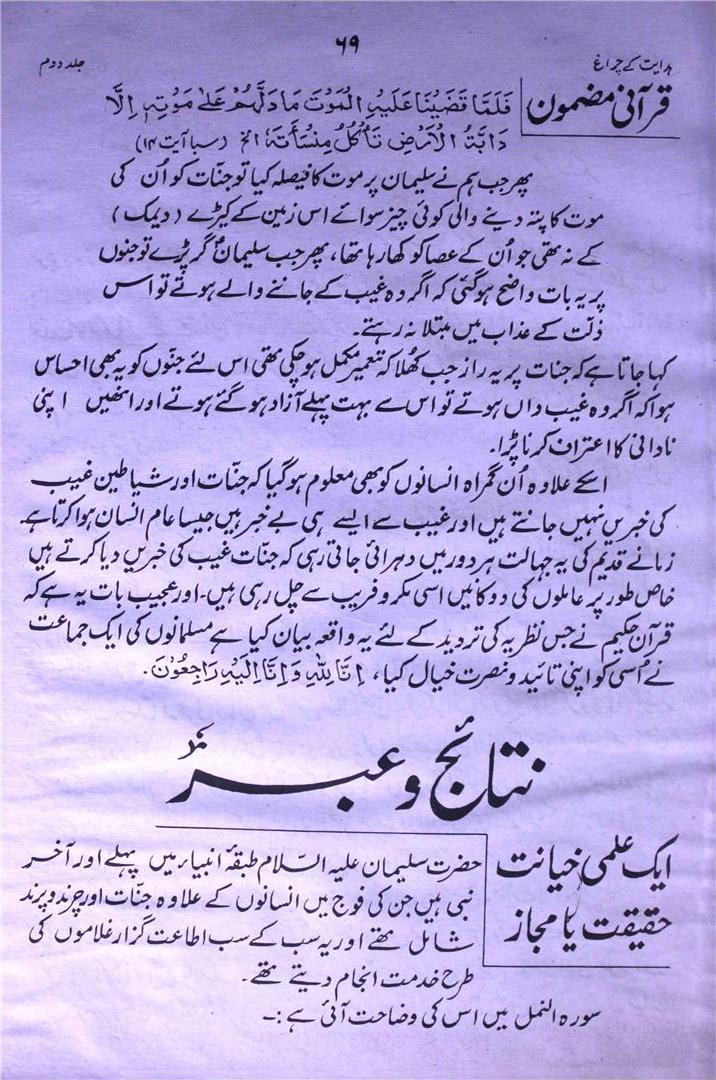 ۶۹
ہدایت کے چراغ
جلد دوم
قرآنی مضمون
فَلَمَّا قَضَيْنَا عَلَيْهِ الْمَوْتَ مَا دَلَّهُمْ عَلٰى مَوْتِهٖ اِلَّا
دَابَّةُ الْاَرْضِ تَأْكُلُ مِنْسَأَتَهٗ الخ (سبا آیت ۱۴)
پھر جب ہم نے سلیمان پر موت کا فیصلہ کیا تو جنّات کو اُن کی
موت کا پتہ دینے والی کوئی چیز سوائے اس زمین کے کیڑے (دیمک)
کے نہ تھی جو اُن کے عصا کو کھا رہا تھا، پھر جب سلیمانؑ گر پڑے تو جنوں
پر یہ بات واضح ہو گئی کہ اگر وہ غیب کے جاننے والے ہوتے تو اس
ذلّت کے عذاب میں مبتلا نہ رہتے۔
کہا جاتا ہے کہ جنات پر یہ راز جب کُھلا کہ تعمیر مکمل ہو چکی تھی اس لئے جنّوں کو یہ بھی احساس
ہوا کہ اگر وہ غیب داں ہوتے تو اس سے بہت پہلے آزاد ہو گئے ہوتے اور انھیں اپنی
نادانی کا اعتراف کرنا پڑا۔
اسکے علاوہ اُن گمراہ انسانوں کو بھی معلوم ہو گیا کہ جنّات اور شیاطین غیب
کی خبریں نہیں جانتے ہیں اور غیب سے ایسے ہی بے خبر ہیں جیسا عام انسان ہوا کرتا ہے۔
زمانے قدیم کی یہ جہالت ہر دور میں دہرائی جاتی رہی کہ جنات غیب کی خبریں دیا کرتے ہیں
خاص طور پر عاملوں کی دوکانیں اسی مکر و فریب سے چل رہی ہیں۔ اور عجیب بات یہ ہے کہ
قرآن حکیم نے جس نظریہ کی تردید کے لئے یہ واقعہ بیان کیا ہے مسلمانوں کی ایک جماعت
نے اُسی کو اپنی تائید و نصرت خیال کیا، اِنَّا لِلّٰهِ وَاِنَّا اِلَيْهِ رَاجِعُوْنَ۔
نتائج و عبر
ایک علمی خیانت
حقیقت یا مجاز
حضرت سلیمان علیہ السّلام طبقۂ انبیاء میں پہلے اور آخر
نبی ہیں جن کی فوج میں انسانوں کے علاوہ جنّات اور چرند و پرند
شامل تھے اور یہ سب کے سب اطاعت گزار غلاموں کی
طرح خدمت انجام دیتے تھے۔
سورہ النمل میں اس کی وضاحت آئی ہے :۔